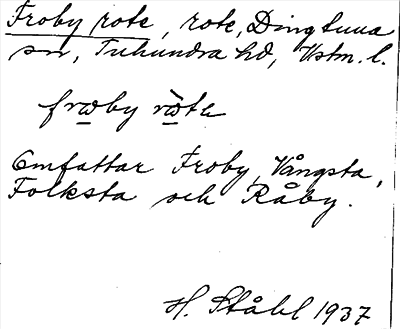 Froby rote, rote, Dingtuna
sn, Tuhundra hd, Vstm. l.
fræby ræ̀te
Omfattar Froby, Vångsta,
Folksta och Råby.
H. Ståhl 1937